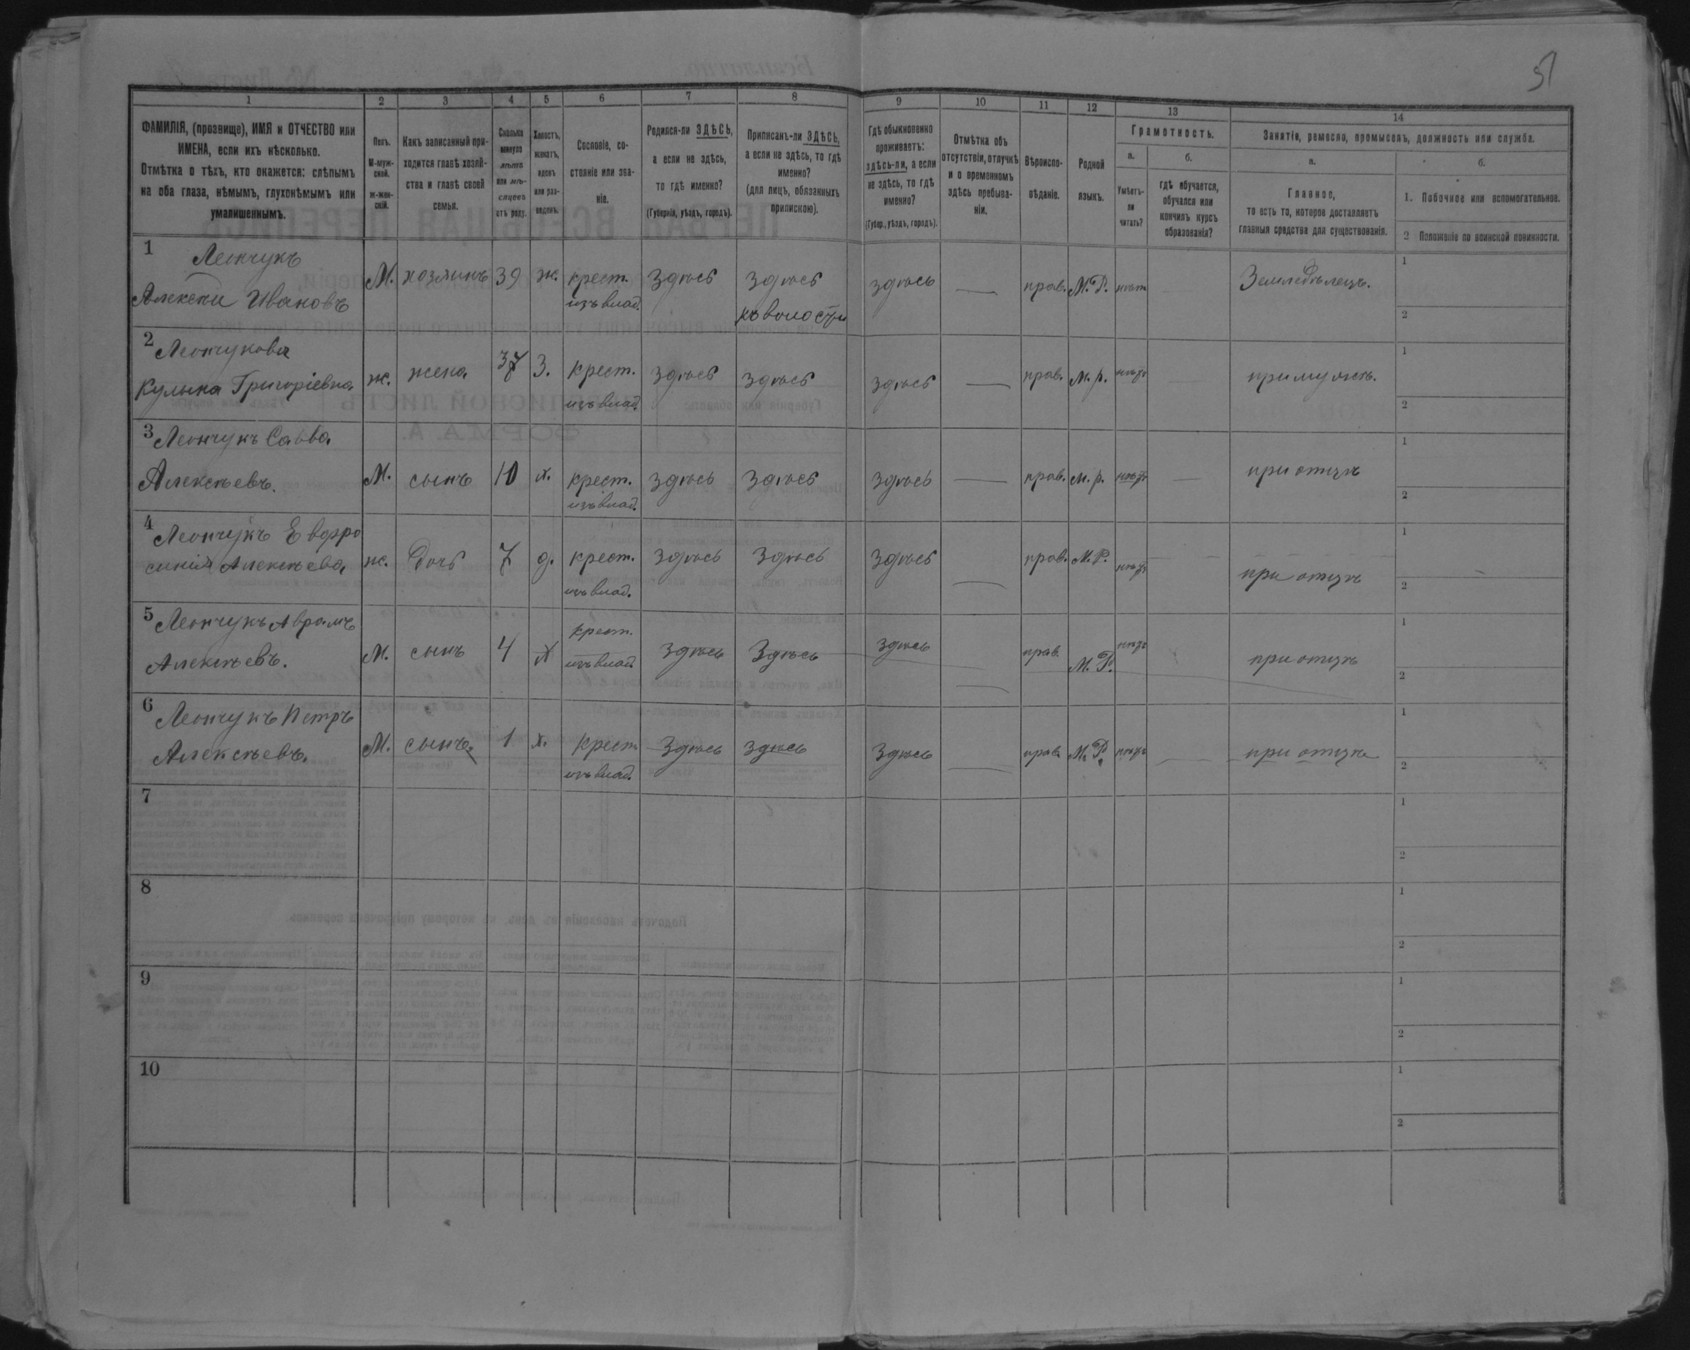 51
1 2 3 4 5 6 7 8 9 10 11 12 13 14
ФАМИЛІЯ, (прозвище), ИМЯ и ОТЧЕСТВО или
ИМЕНА, если ихъ нѣсколько.
Отмѣтка о тѣхъ, кто окажется: слѣпымъ
на оба глаза, нѣмымъ, глухонѣмымъ или
умалишеннымъ.
Полъ.
М-муж-
ской.
Ж-жен-
скій.
Какъ записанный при-
ходится главѣ хозяй-
ства и главѣ своей
семьи.
Сколько
минуло
лѣтъ
или мѣ-
сяцевъ
отъ роду.
Холостъ,
женатъ,
вдовъ
или раз-
веденъ.
Сословіе, со-
стояніе или зва-
ніе.
Родился-ли ЗДѢСЬ,
а если не здѣсь,
то гдѣ именно?
(Губернія, уѣздъ, городъ).
Приписанъ-ли ЗДѢСЬ,
а если не здѣсь, то гдѣ
именно?
(для лицъ, обязанныхъ
припискою).
Гдѣ обыкновенно
проживаетъ:
здѣсь-ли, а если
не здѣсь, то гдѣ
именно?
(Губер., уѣздъ, городъ).
Отмѣтка объ
отсутствіи, отлучкѣ
и о временномъ
здѣсь пребыва-
ніи.
Вѣроиспо-
вѣданіе.
Родной
языкъ.
Грамотность.
а.
Умѣетъ-
ли
читать?
б.
гдѣ обучается,
обучался или
кончилъ курсъ
образованія?
Занятіе, ремесло, промыселъ, должность или служба.
а.
Главное,
то есть то, которое доставляетъ
главныя средства для существованія.
б.
1. Побочное или вспомогательное.
2 Положеніе по воинской повинности.
1 Леончукъ
Алексѣй Ивановъ М. хозяинъ 39 ж. крест. изъ влад. здѣсь здѣсь къ волости здѣсь — прав. М.Р. нѣтъ Земледѣлецъ. 1 2
2 Леончукова
Кулына Григоріевна ж. жена 37 З. крест. изъ влад. здѣсь здѣсь здѣсь — прав. м.р. нѣтъ при мужѣ. 1 2
3 Леончукъ Савва
Алексѣевъ. М. сынъ 10 х. крест. изъ влад. здѣсь здѣсь здѣсь — прав. м.р. нѣтъ при отцѣ 1 2
4 Леончукъ Евфро
синия Алексѣева ж. дочь 7 д. крест. изъ влад. здѣсь здѣсь здѣсь — прав. М.Р. нѣтъ при отцѣ 1 2
5 Леончукъ Аврамъ
Алексѣевъ. М. сынъ 4 х крест. изъ влад. здѣсь здѣсь здѣсь — прав. М.Р. нѣтъ при отцѣ 1 2
6 Леончукъ Петръ
Алексѣевъ. М. сынъ 1 х. крест изъ влад. здѣсь здѣсь здѣсь — прав. М.Р. нѣтъ при отцѣ 1 2
7 1 2
8 1 2
9 1 2
10 1 2